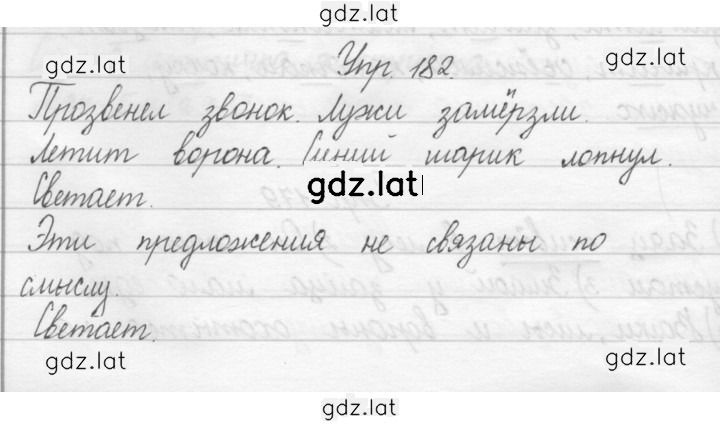 gdz.lat
gdz.lat Упр. 182. gdz.lat
Прозвенел звонок. Лужи замёрзли.
Летит ворона. Синий шарик лопнул.
gdz.lat
Светает.
Эти предложения не связаны по
смыслу.
Светает.
gdz.lat gdz.lat
gdz.lat